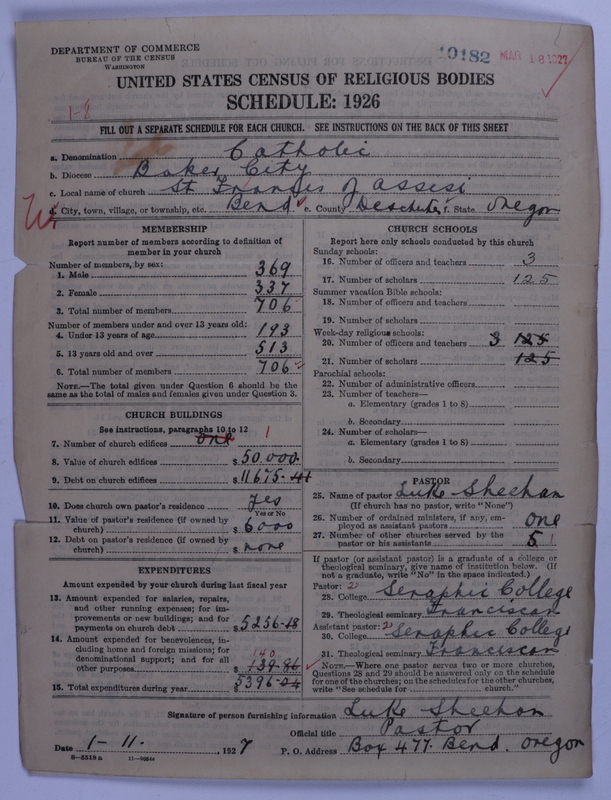 DEPARTMENT OF COMMERCE
BUREAU OF THE CENSUS
WASHINGTON
40182 MAR 18 1927
UNITED STATES CENSUS OF RELIGIOUS BODIES
SCHEDULE: 1926
1-8
FILL OUT A SEPARATE SCHEDULE FOR EACH CHURCH. SEE INSTRUCTIONS ON THE BACK OF THIS SHEET
a. Denomination Catholic
b. Diocese Baker City
c. Local name of church St Francis of Assisi
d. City, town, village, or township, etc. Bend e. County Deschutes f. State Oregon
MEMBERSHIP
Report number of members according to definition of
member in your church
Number of members, by sex:
1. Male 369
2. Female 337
3. Total number of members 706
Number of members under and over 13 years old:
4. Under 13 years of age 193
5. 13 years old and over 513
6. Total number of members 706
NOTE.—The total given under Question 6 should be
same as the total of males and females given under Question 3.
CHURCH BUILDINGS
See instructions, paragraphs 10 to 12
7. Number of church edifices one 1
8. Value of church edifices $ 50,000
9. Debt on church edifices $ 11675-41
10. Does church own pastor's residence yes
Yes or No
11. Value of pastor's residence (if owned by
church) $ 6000
12. Debt on pastor's residence (if owned by
church) $ none
EXPENDITURES
Amount expended by your church during last fiscal year
13. Amount expended for salaries, repairs,
and other running expenses; for im-
provements or new buildings; and for
payments on church debt $ 5256-18
14. Amount expended for benevolences, in-
cluding home and foreign missions; for
denominational support; and for all
140
other purposes $ 139-86
15. Total expenditures during year $ 5396-04
CHURCH SCHOOLS
Report here only schools conducted by this church
Sunday schools:
16. Number of officers and teachers 3
17. Number of scholars 125
Summer vacation Bible schools:
18. Number of officers and teachers
19. Number of scholars
Week-day religious schools:
20. Number of officers and teachers 3 125
21. Number of scholars 125
Parochial schools:
22. Number of administrative officers
23. Number of teachers—
a. Elementary (grades 1 to 8)
b. Secondary
24. Number of scholars—
a. Elementary (grades 1 to 8)
b. Secondary
PASTOR
25. Name of pastor Luke Sheehan
(If church has no pastor, write "None")
26. Number of ordained ministers, if any, em-
ployed as assistant pastors one
27. Number of other churches served by the
pastor or his assistants 5
If pastor (or assistant pastor) is a graduate of a college or
theological seminary, give name of institution below. (If
not a graduate, write "No" in the space indicated.)
Pastor: 2
28. College Seraphic College
29. Theological seminary Franciscan
Assistant pastor: 2
30. College Seraphic College
31. Theological seminary Franciscan
NOTE.—Where one pastor serves two or more churches,
Questions 28 and 29 should be answered only on the schedule
for one of the churches; on the schedules for the other churches,
write "See schedule for church."
Signature of person furnishing information Luke Sheehan
Official title Pastor
Date 1-11. , 1927 P. O. Address Box 477. Bend. Oregon
8-5519 a